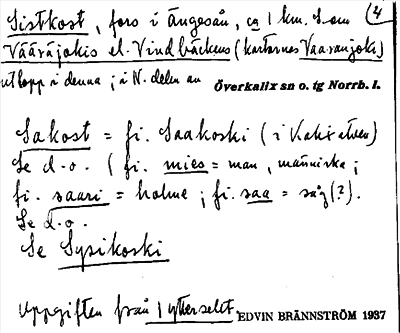 Sistkost, fors i Ängesån, ca 1 km. S om (4
Vääräjokis el. Vindbäckens (kartornas Vaaranjoki)
utlopp i denna; i N. delen av Överkalix sn o. tg Norrb. l.
Sakost = fi. Saakoski (i Kalixälven)
Se d.o. (fi. mies = man, människa;
fi. saari = holme; fi. saa = såg(?).
Se d.o.
Se Sysikoski
Uppgiften från Ytterselet EDVIN BRÄNNSTRÖM 1937